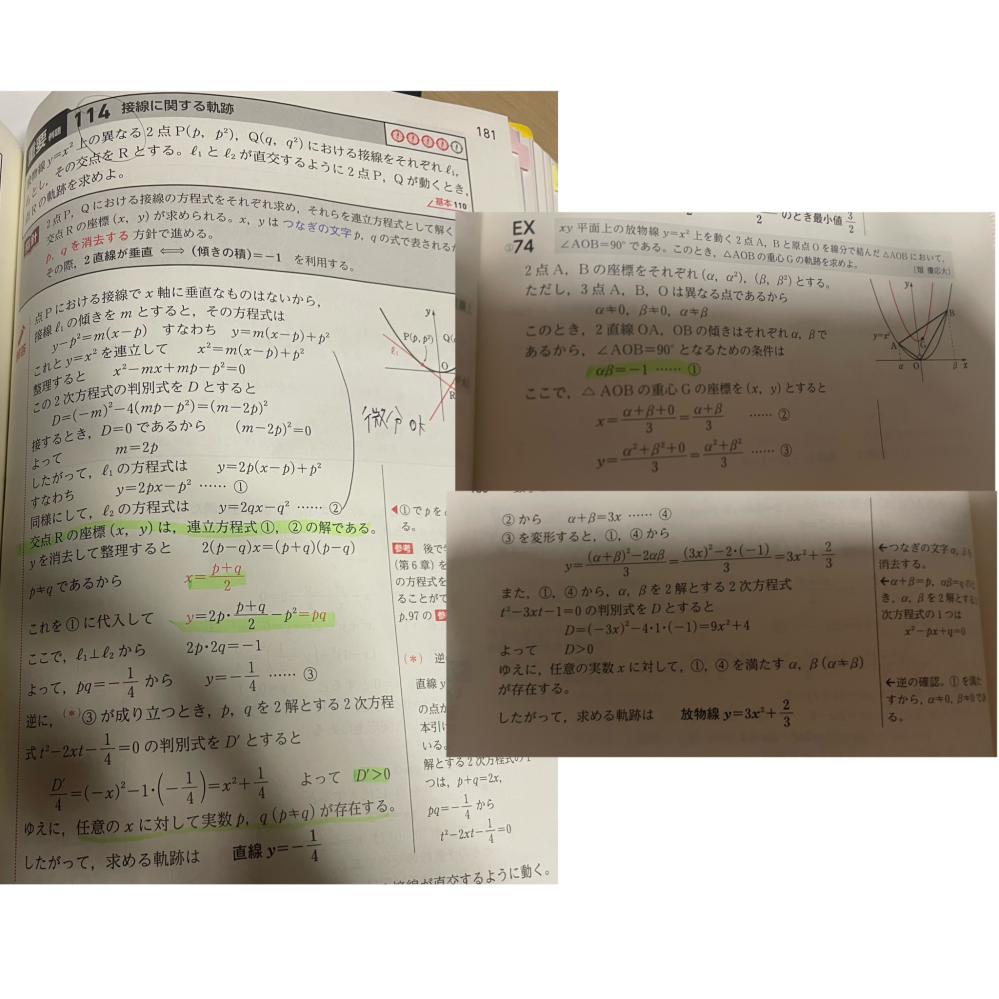 114 接線に関する軌跡
181
物線 y=x² 上の異なる2点P(p, p²), Q(q, q²) における接線をそれぞれ ℓ₁,
とし, その交点をRとする。ℓ₁ と ℓ₂ が直交するように2点P, Qが動くとき,
Rの軌跡を求めよ。
基本110
2点P, Qにおける接線の方程式をそれぞれ求め, それらを連立方程式として解く
交点Rの座標 (x, y) が求められる。x, y はつなぎの文字 p, q の式で表される
p, q を消去する 方針で進める。
その際, 2直線が垂直 ⟺ (傾きの積)=-1 を利用する。
点Pにおける接線で x 軸に垂直なものはないから,
接線 ℓ₁ の傾きを m とすると, その方程式は
y-p²=m(x-p) すなわち y=m(x-p)+p²
これと y=x² を連立して x²=m(x-p)+p²
整理すると x²-mx+mp-p²=0
この2次方程式の判別式を D とすると
D=(-m)²-4(mp-p²)=(m-2p)²
接するとき, D=0 であるから (m-2p)²=0
よって m=2p
したがって, ℓ₁ の方程式は y=2p(x-p)+p²
すなわち y=2px-p² …… ①
同様にして, ℓ₂ の方程式は y=2qx-q² …… ②
交点Rの座標 (x, y) は, 連立方程式①, ②の解である。
y を消去して整理すると 2(p-q)x=(p+q)(p-q)
p≠q であるから x=(p+q)/2
これを①に代入して y=2p・(p+q)/2-p²=pq
ここで, ℓ₁⊥ℓ₂ から 2p・2q=-1
よって, pq=-1/4 から y=-1/4 …… ③
逆に, (*)③が成り立つとき, p, q を2解とする2次方程
式 t²-2xt-1/4=0 の判別式を D′ とすると
D′/4=(-x)²-1・(-1/4)=x²+1/4 よって D′>0
ゆえに, 任意の x に対して実数 p, q (p≠q) が存在する。
したがって, 求める軌跡は 直線 y=-1/4
y
P(p, p²)
ℓ₁
O
R
微分 ok
◀①で p を
る。
参考 後で
(第6章) を
の方程式を
ることが
p.97 の
(*) 逆
直線 y
の点か
本引け
いる。
解とする2次方程式の1
つは, p+q=2x,
pq=-1/4 から
t²-2xt-1/4=0
接線が直交するように動く。
のとき最小値 3/2
EX
74
xy 平面上の放物線 y=x² 上を動く2点A, Bと原点Oを線分で結んだ△AOBにおいて,
∠AOB=90° である。このとき, △AOBの重心Gの軌跡を求めよ。
[類 慶応大]
2点A, Bの座標をそれぞれ (α, α²), (β, β²) とする。
ただし, 3点A, B, Oは異なる点であるから
α≠0, β≠0, α≠β
このとき, 2直線OA, OBの傾きはそれぞれ α, β で
あるから, ∠AOB=90° となるための条件は
αβ=-1 …… ①
ここで, △AOBの重心Gの座標を (x, y) とすると
x=(α+β+0)/3=(α+β)/3 …… ②
y=(α²+β²+0)/3=(α²+β²)/3 …… ③
y
B
y=x²
A
G
α O β x
②から α+β=3x …… ④
③を変形すると, ①, ④から
y=((α+β)²-2αβ)/3=((3x)²-2・(-1))/3=3x²+2/3
また, ①, ④から, α, β を2解とする2次方程式
t²-3xt-1=0 の判別式を D とすると
D=(-3x)²-4・1・(-1)=9x²+4
よって D>0
ゆえに, 任意の実数 x に対して, ①, ④を満たす α, β (α≠β)
が存在する。
したがって, 求める軌跡は 放物線 y=3x²+2/3
←つなぎの文字 α, β を
消去する。
←α+β=p, αβ=q のと
き, α, β を2解とする
次方程式の1つは
x²-px+q=0
←逆の確認。①を満た
すから, α≠0, β≠0 であ
る。